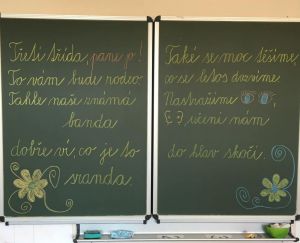 Třetí třída, pane jo!
To vám bude rodeo.
Tahle naše známá
banda
dobře ví, co je to
sranda.
Také se moc těšíme,
co se letos dozvíme.
Nastražíme
, učení nám
do hlav skočí.